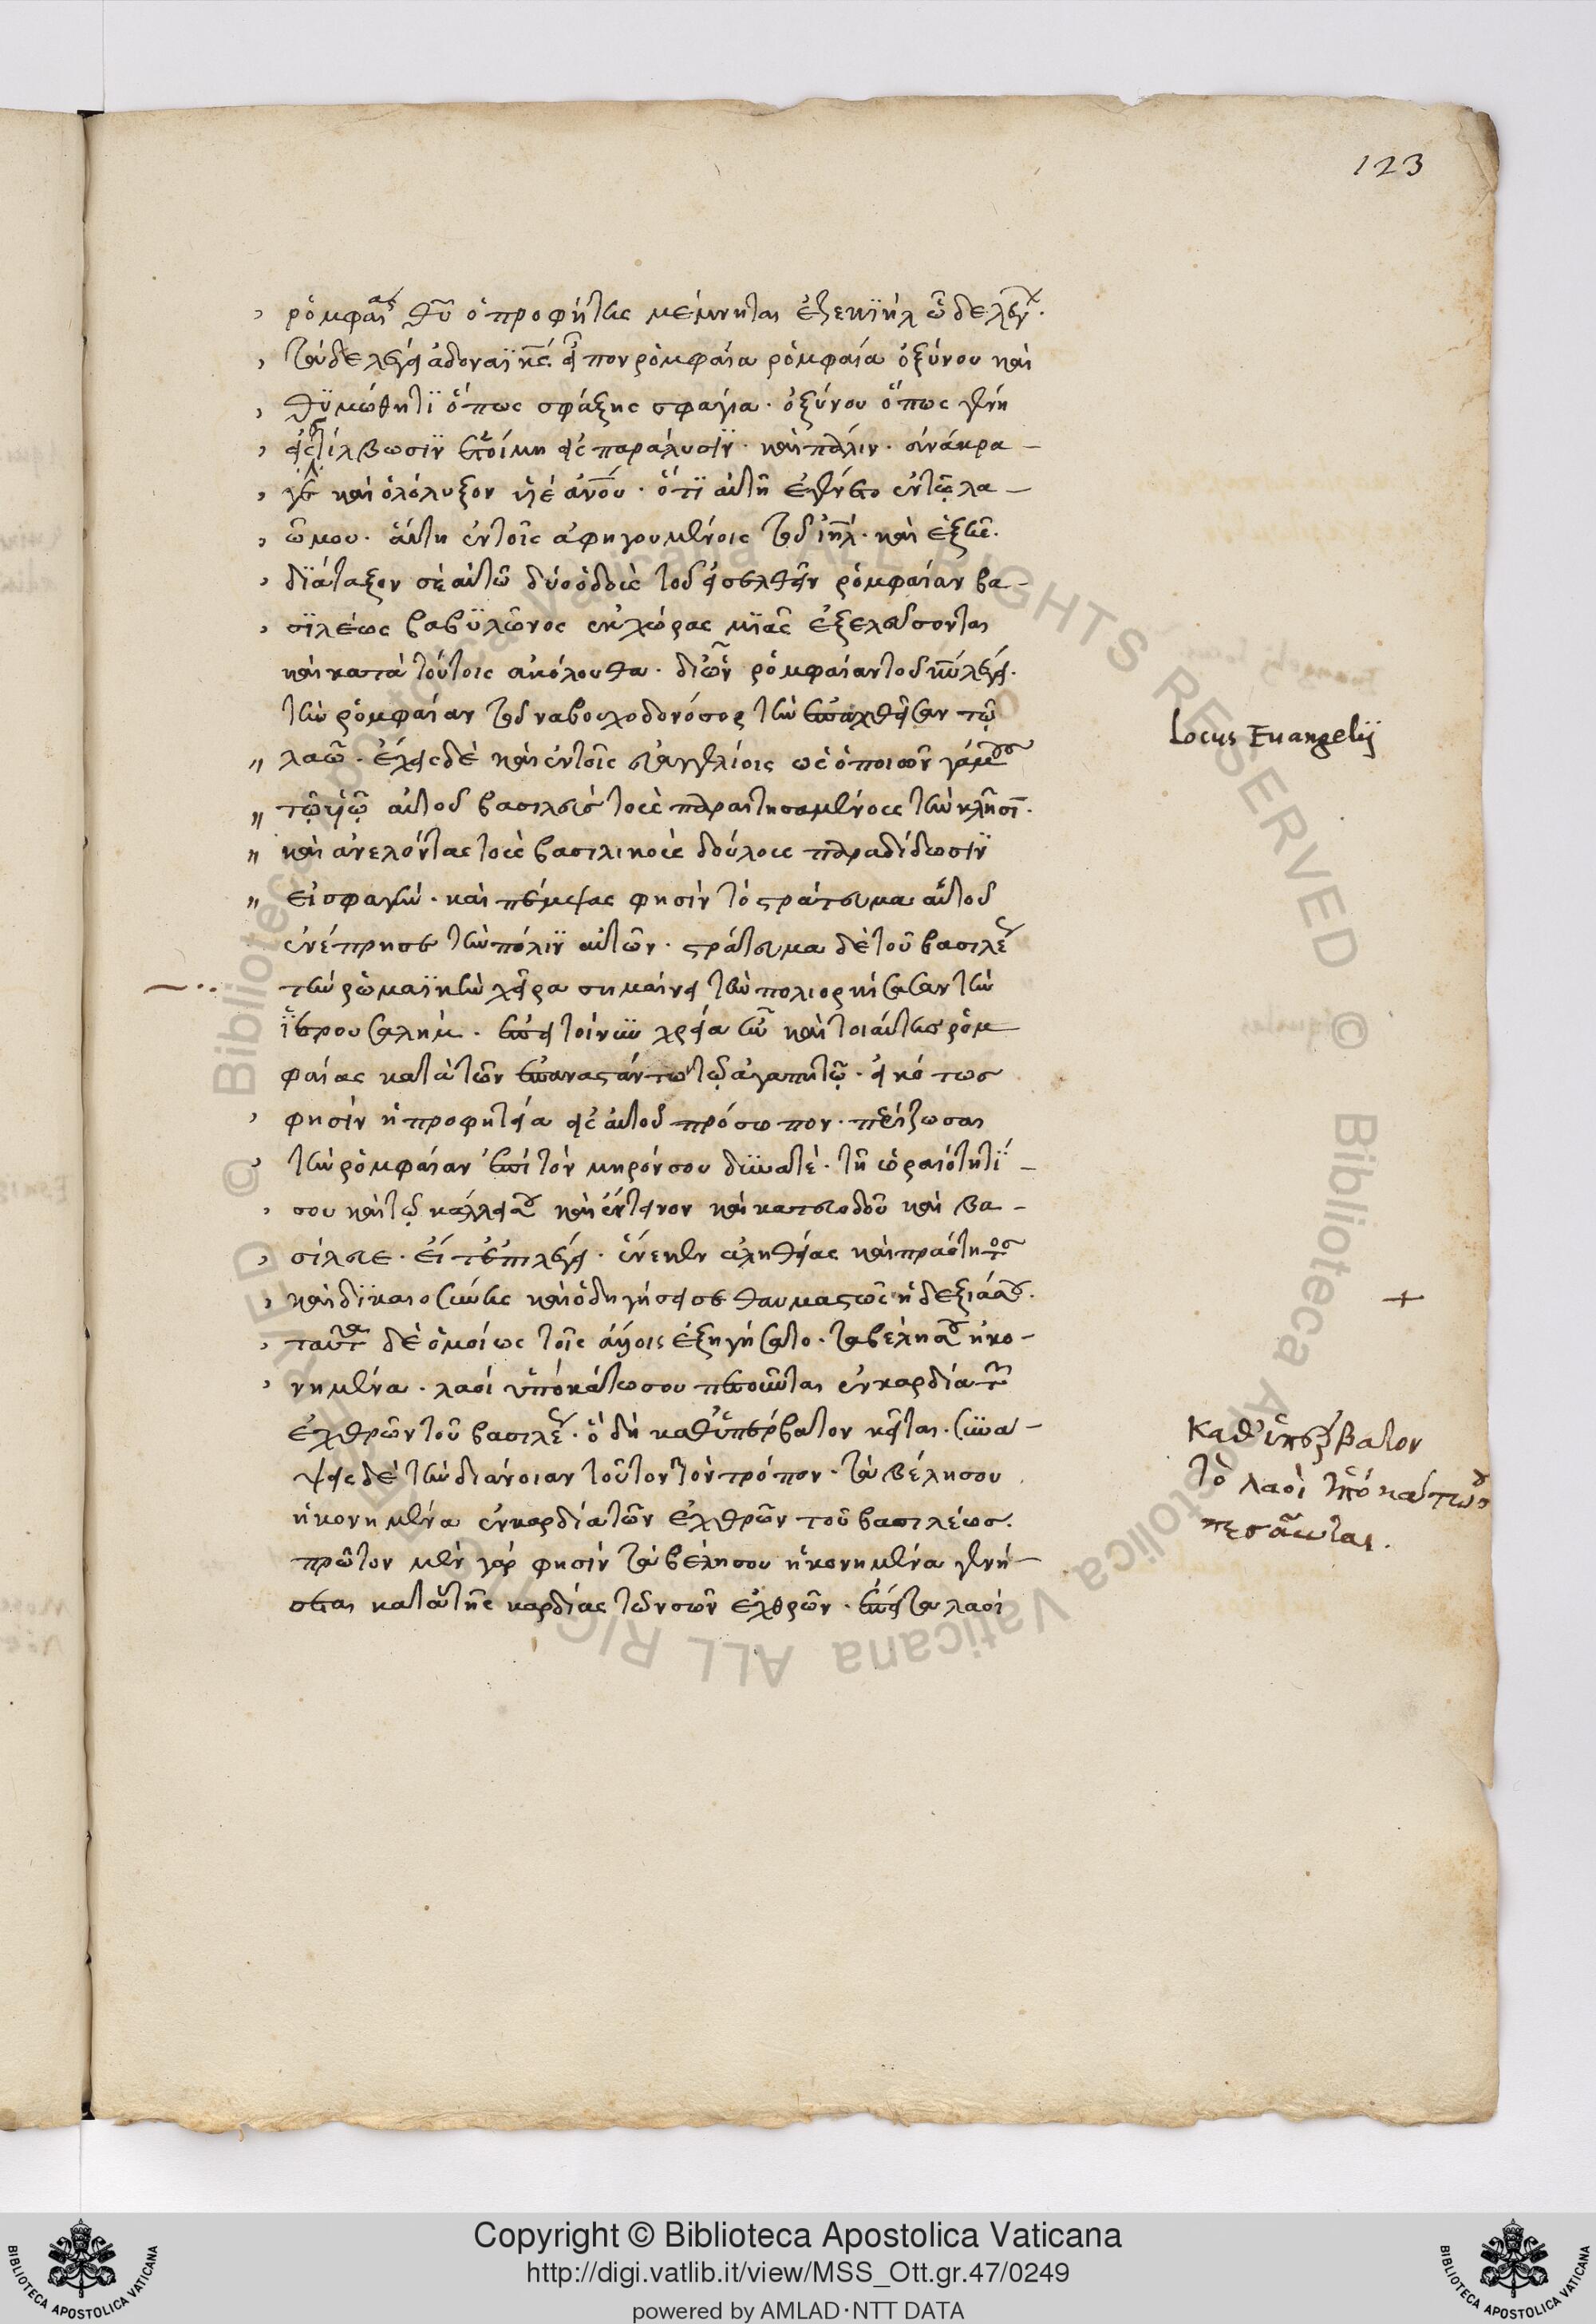 123
ῥομφαίας θῦ ὁ προφήτης μέμνηται ἐζεκϊήλ ὧδε λέγων·
τάδε λέγει ἀδοναῒ κς· εἶπον ῥομφαία ῥομφαία ὀξύνου καὶ
θϋμώθητϊ ὅπως σφάξης σφάγια· ὀξύνου ὅπως γένη
εἰς στίλβωσϊν ἑτοίμη εἰς παράλυσϊν· καὶ πάλιν· ἀνάκρα-
γε καὶ ὀλόλυξον υἱὲ ἀνου· ὅτϊ αὐτὴ ἐγένετο ἐν τῷ λα-
ῶ μου· αὐτὴ ἐν τοῖς ἀφηγουμένοις τοῦ ιηλ· καὶ ἑξῆς·
δϊάταξον σεαυτῶ δύο ὁδοὺς τοῦ εἰσελθεῖν ῥομφαίαν βα-
σϊλέως βαβϋλῶνος ἐκ χώρας μϊᾶς ἐξελεύσονται
καὶ κατὰ τούτοις ἀκόλουθα· δι' ὧν ῥομφαίαν τοῦ κυ λέγει·
τὴν ῥομφαίαν τοῦ ναβουχοδονόσορ τὴν ἐπαχθεῖσαν τῷ
λαῶ· ἔχεις δὲ καὶ ἐν τοῖς εὐαγγελίοις ὡς ὁ ποιῶν γάμους
τῷ υἱῷ αὐτοῦ βασιλεὺς τοὺς παραιτησαμένους τὴν κλῆσϊν·
καὶ ἀνελόντας τοὺς βασιλικοὺς δούλους παραδίδωσϊν
εἰ σφαγήν· καὶ πέμψας φησὶν τὸ στράτευμα αὐτοῦ
ἐνέπρησε τὴν πόλϊν αὐτῶν· στράτευμα δὲ τοῦ βασιλέως
τὴν ῥωμαϊκὴν χεῖρα σημαίνει τὴν πολιορκήσασαν τὴν
ϊερουσαλήμ· ἐπεὶ τοίνυν χρεία ἦν καὶ τοιαύτης ῥομ
φαίας κατὰ τῶν ἐπαναστάντων τῷ ἀγαπητῷ· εἰκότως
φησὶν ἡ προφητεία εἰς αὐτοῦ πρόσωπον· περίζωσαι
τὴν ῥομφαίαν ἐπὶ τὸν μηρόν σου δυνατέ· τῆ ὡραιότητϊ
σου καὶ τῷ κάλλει σου καὶ ἔντεινον καὶ κατευοδοῦ καὶ βα-
σίλευε· εἶτ' ἐπιλέγει· ἕνεκεν ἀληθείας καὶ πραότητος
καὶ δϊκαιοσύνης καὶ ὁδηγήσει σε θαυμαστῶς ἡ δεξιά σου·
ταῦτα δὲ ὁμοίως τοῖς ἄλλοις ἐξηγήσατο· τὰ βέλη σου ἠκο-
νημένα· λαοὶ ὑποκάτω σου πεσοῦνται ἐν καρδία τῶν
ἐχθρῶν τοῦ βασιλέως· ὃ δὴ καθ' ὑπέρβατον κεῖται· συνά-
ψεις δὲ τὴν διάνοιαν τοῦτον τὸν τρόπον· τὰ βέλη σου
ἠκονημένα ἐν καρδία τῶν ἐχθρῶν τοῦ βασιλέως·
πρῶτον μὲν γάρ φησιν τὰ βέλη σου ἠκονημένα γενή-
σεται κατὰ τῆς καρδίας τῶν σῶν ἐχθρῶν· ἔπειτα λαοὶ
Locus Euangelij
+
Καθ' ὑπέρβατον
τὸ λαοὶ ὑποκάτω σου
πεσοῦνται.
Copyright © Biblioteca Apostolica Vaticana
http://digi.vatlib.it/view/MSS_Ott.gr.47/0249
powered by AMLAD·NTT DATA
BIBLIOTECA APOSTOLICA VATICANA
BIBLIOTECA APOSTOLICA VATICANA